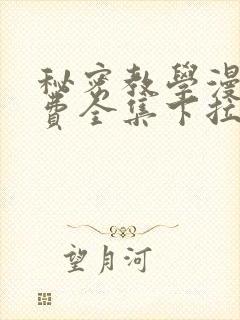 秘密教學漫
費全集下拉
望月河